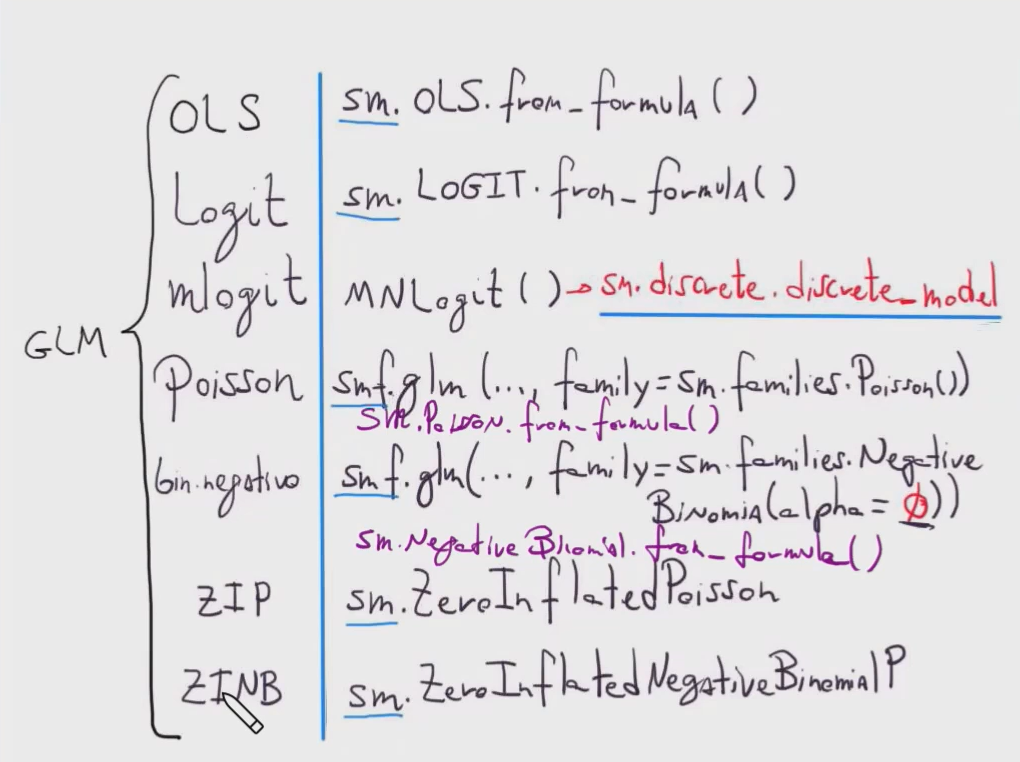 OLS sm. OLS. from_formula ( )
Logit sm. LOGIT. from_formula ( )
mlogit MNLogit ( ) → sm. discrete. discrete_model
GLM
Poisson smf.glm (..., family = sm. families. Poisson())
sm.Poisson. from_formula ( )
bin.negativo smf.glm(..., family = sm. families. Negative
Binomia(alpha = ϕ))
sm.Negative Binomial. from_formula ( )
ZIP sm.ZeroInflatedPoisson
ZINB sm. ZeroInflatedNegativeBinomialP